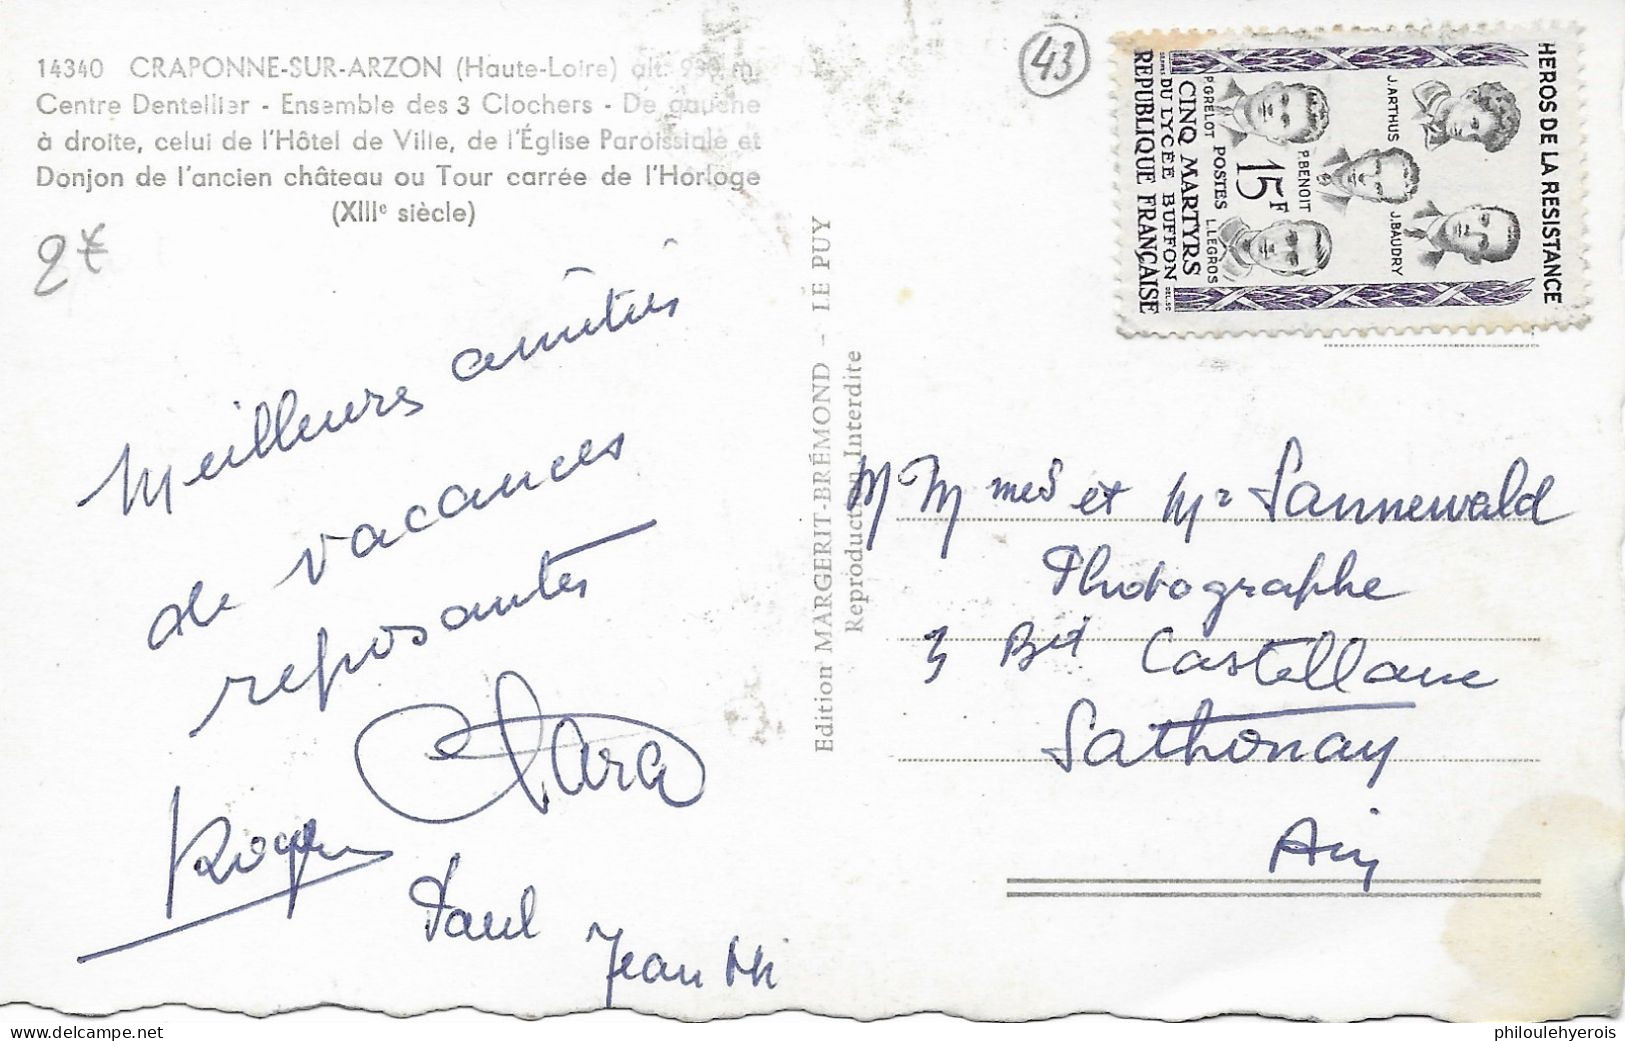 14340 CRAPONNE-SUR-ARZON (Haute-Loire) alt. m.
Centre Dentellier - Ensemble des 3 Clochers - De gauche
à droite, celui de l'Hôtel de Ville, de l'Église Paroissiale et
Donjon de l'ancien château ou Tour carrée de l'Horloge
(XIIIe siècle)
2€
43
HEROS DE LA RESISTANCE
J.ARTHUS
J.BAUDRY
P.BENOIT
P.GRELOT
L.LEGROS
POSTES
15F
CINQ MARTYRS
DU LYCÉE BUFFON
REPUBLIQUE FRANÇAISE
Meilleures amitiés
de vacances
reposantes
Clara
Roger
Paul
Jean Mi
Edition MARGERIT-BRÉMOND - LE PUY
Reproduction Interdite
M M mes et Mr Sannewald
Photographe
3 Bd Castellane
Sathonay
Ain
philoulehyerois
delcampe.net